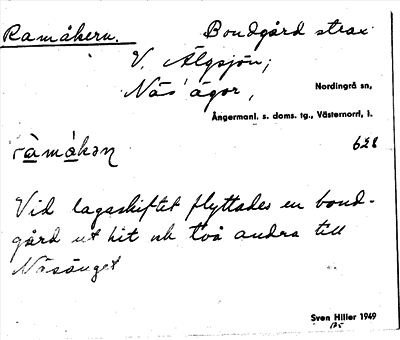 Ramåkern. Bondgård strax
V. Älgsjön;
Näs' ägor,
Nordingrå sn,
Ångermanl. s. doms. tg., Västernorrl, l.
ràmákən 628
Vid lagaskiftet flyttades en bond-
gård ut hit och två andra till
Näsänget
Sven Hiller 1949